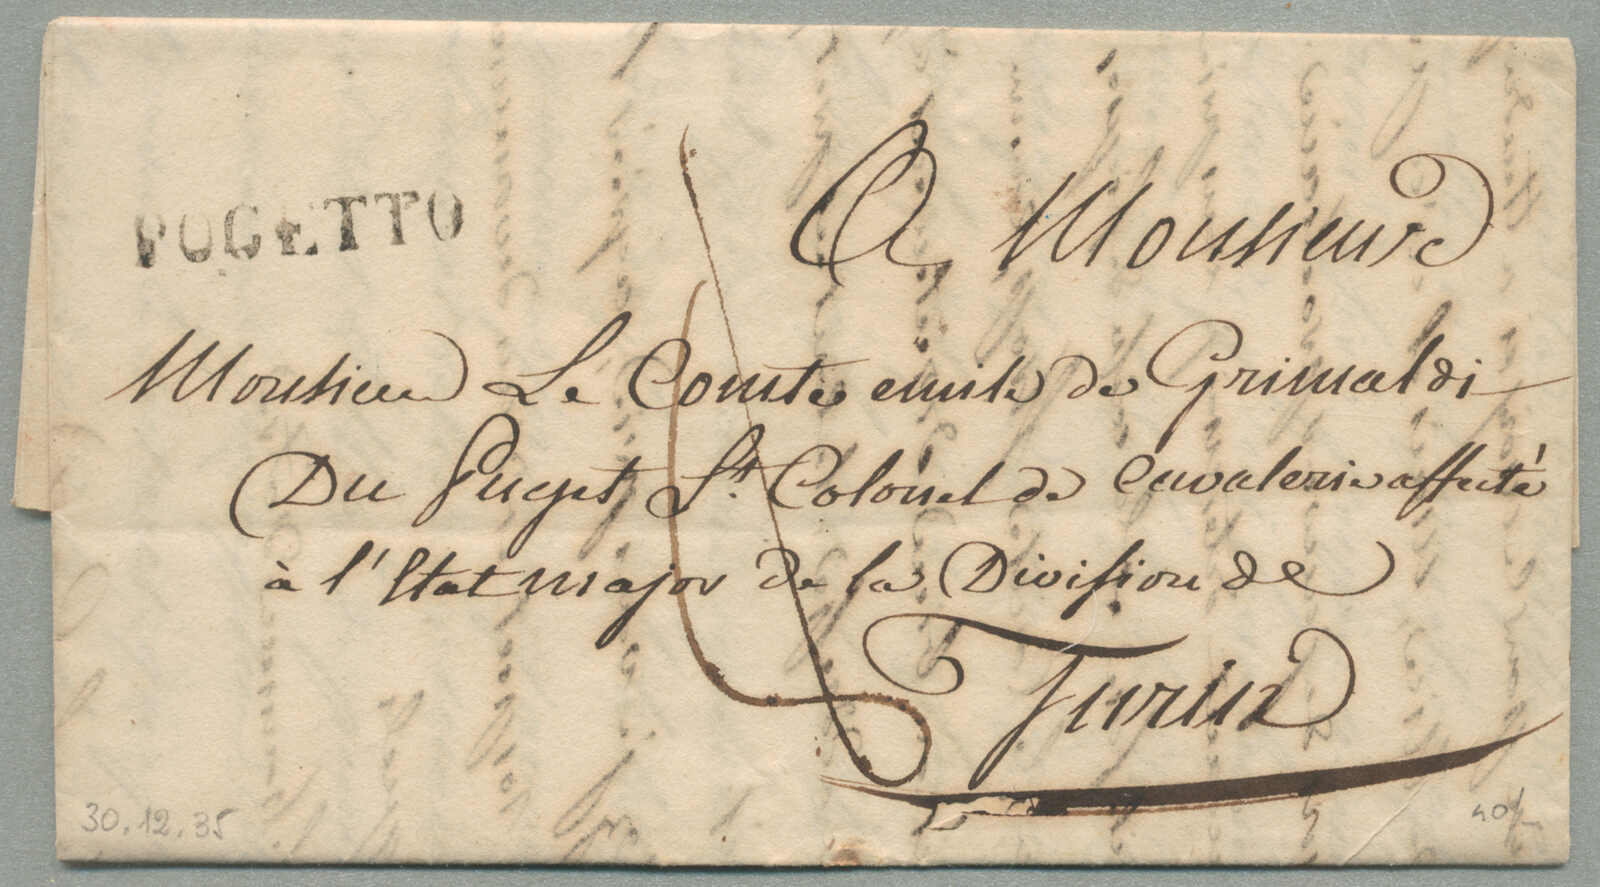 POGETTO
A Monsieur
Monsieur Le Comte emile de Grimaldi
Du Puget Lt. Colonel de Cavalerie affecté
à l'Etat major de la Division de
Turin
30.12.35